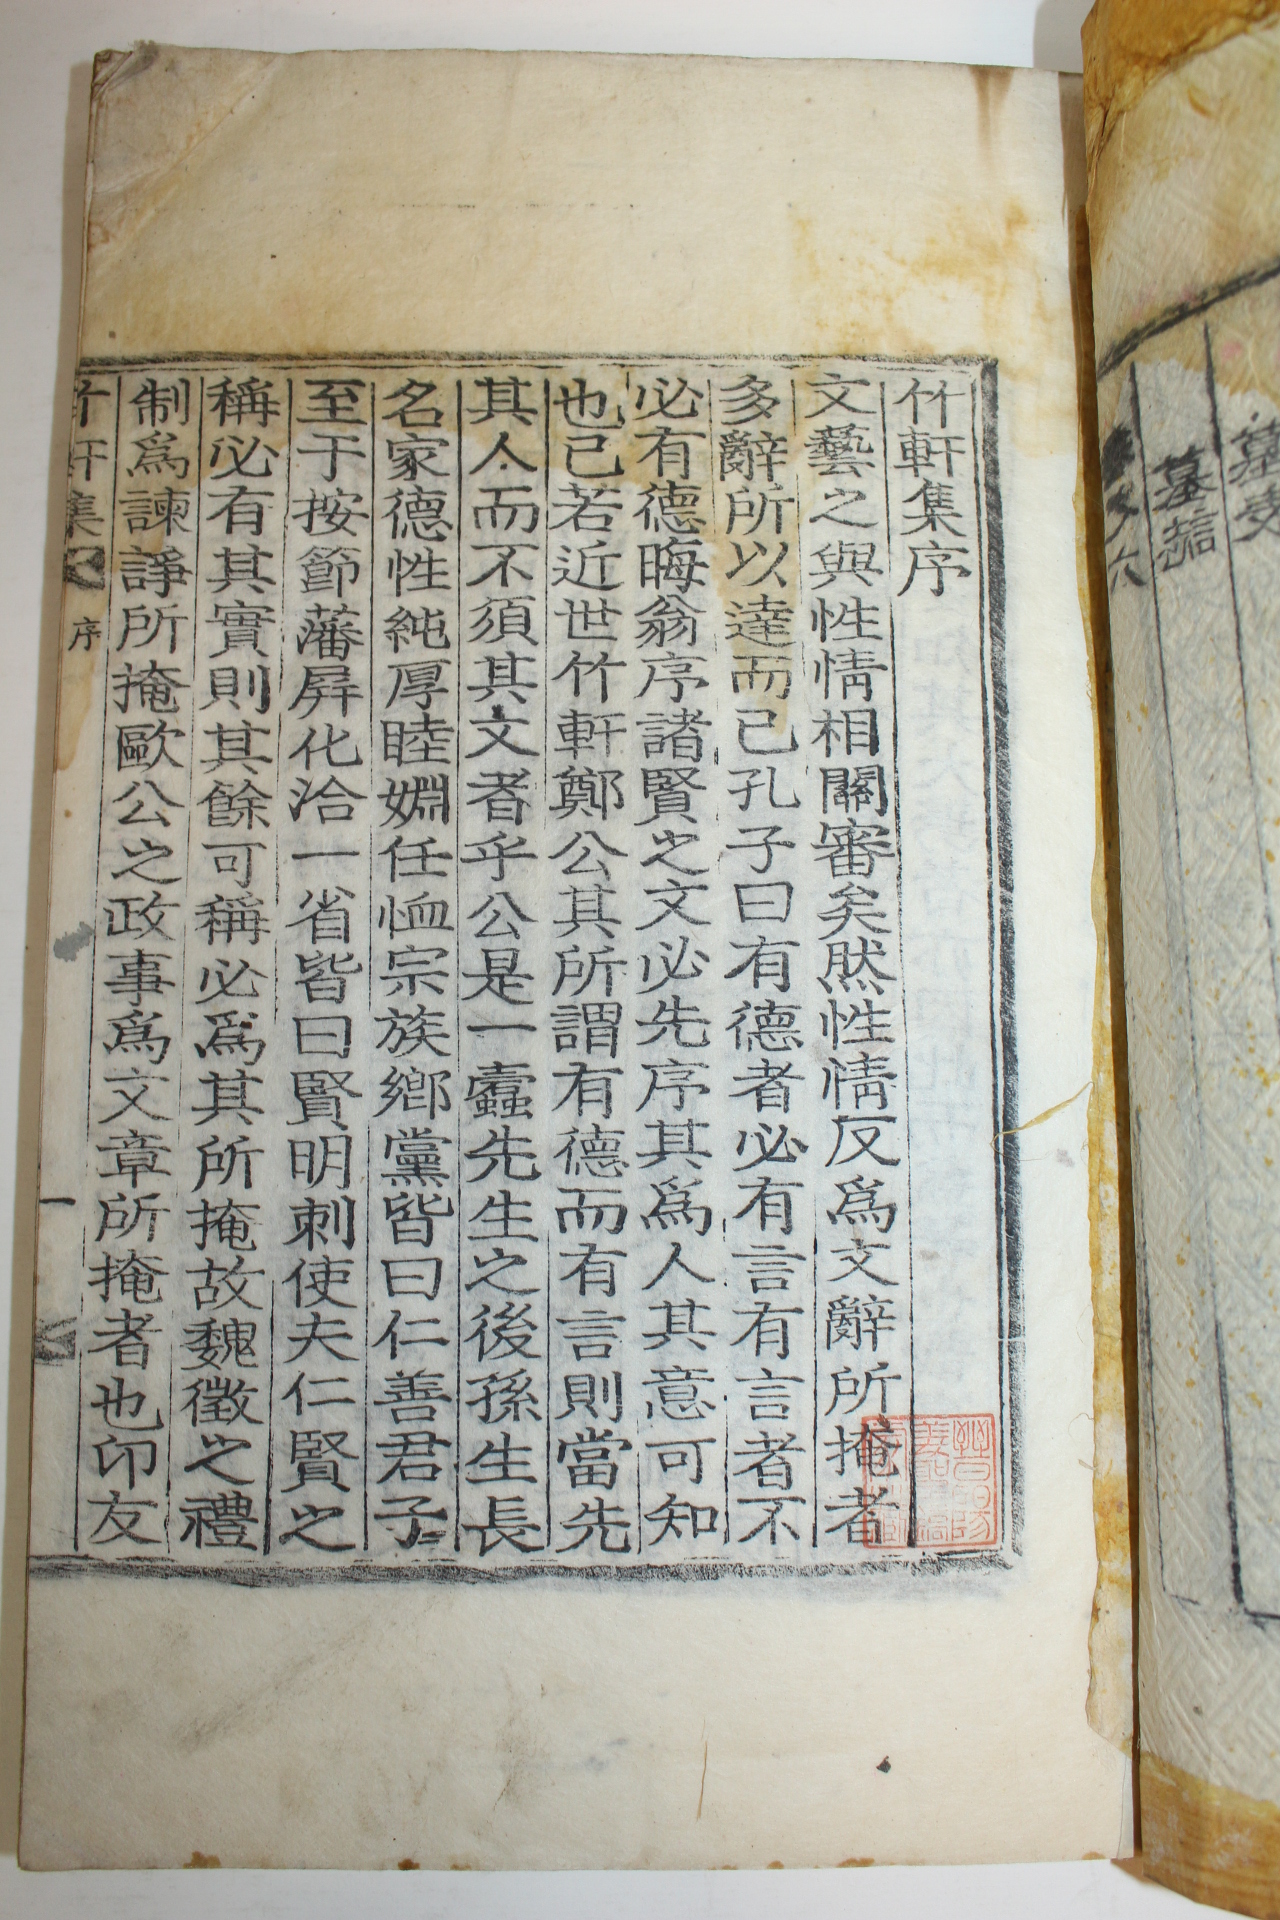 竹軒集序
文藝之與性情相關審矣然性情反爲文辭所掩者
多辭所以達而已孔子曰有德者必有言有言者不
必有德晦翁序諸賢之文必先序其爲人其意可知
也已若近世竹軒鄭公其所謂有德而有言則當先
其人而不須其文者乎公是一蠹先生之後孫生長
名家德性純厚睦婣任恤宗族鄉黨皆曰仁善君子
至于按節藩屛化洽一省皆曰賢明刺使夫仁賢之
稱必有其實則其餘可稱必爲其所掩故魏徵之禮
制爲諫諍所掩歐公之政事爲文章所掩者也印友
竹軒集
序
一
墓
墓誌
六